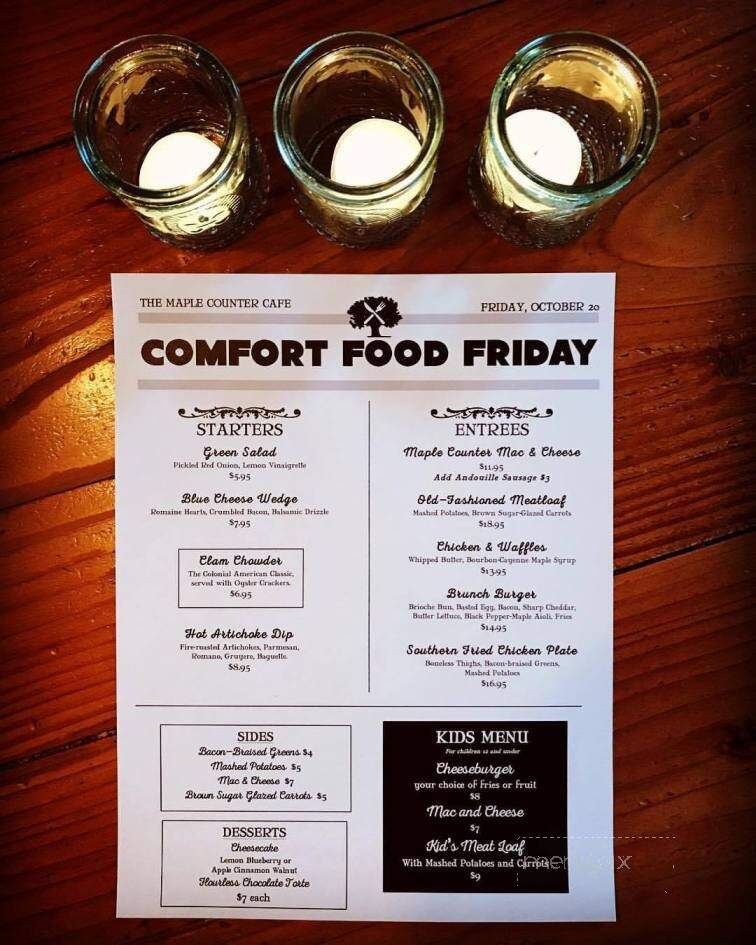 THE MAPLE COUNTER CAFE
FRIDAY, OCTOBER 20
COMFORT FOOD FRIDAY
STARTERS
Green Salad
Pickled Red Onion, Lemon Vinaigrette
$5.95
Blue Cheese Wedge
Romaine Hearts, Crumbled Bacon, Balsamic Drizzle
$7.95
Clam Chowder
The Colonial American Classic,
served with Oyster Crackers.
$6.95
Hot Artichoke Dip
Fire-roasted Artichokes, Parmesan,
Romano, Gruyere, Baguette.
$8.95
ENTREES
Maple Counter Mac & Cheese
$11.95
Add Andouille Sausage $3
Old-Fashioned Meatloaf
Mashed Potatoes, Brown Sugar-Glazed Carrots
$18.95
Chicken & Waffles
Whipped Butter, Bourbon-Cayenne Maple Syrup
$13.95
Brunch Burger
Brioche Bun, Basted Egg, Bacon, Sharp Cheddar,
Butter Lettuce, Black Pepper-Maple Aioli, Fries
$14.95
Southern Fried Chicken Plate
Boneless Thighs, Bacon-braised Greens,
Mashed Potatoes
$16.95
SIDES
Bacon-Braised Greens $4
Mashed Potatoes $5
Mac & Cheese $7
Brown Sugar Glazed Carrots $5
DESSERTS
Cheesecake
Lemon Blueberry or
Apple Cinnamon Walnut
Flourless Chocolate Torte
$7 each
KIDS MENU
For children 12 and under
Cheeseburger
your choice of Fries or Fruit
$8
Mac and Cheese
$7
Kid's Meat Loaf
With Mashed Potatoes and Carrots
$9